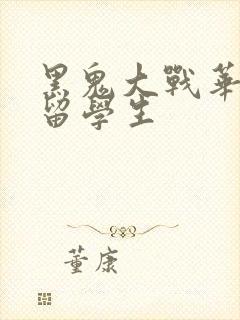 黑鬼大戰華
留學生
董康